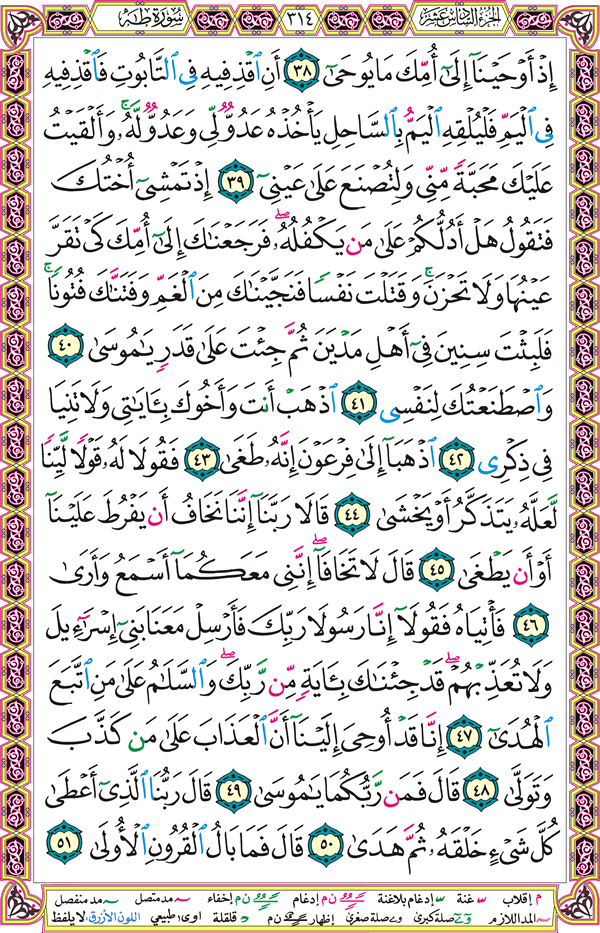 الجزء السادس عشر ٣١٤ سورة طه
إِذْ أَوْحَيْنَآ إِلَىٰٓ أُمِّكَ مَا يُوحَىٰٓ ٣٨ أَنِ ٱقْذِفِيهِ فِى ٱلتَّابُوتِ فَٱقْذِفِيهِ
فِى ٱلْيَمِّ فَلْيُلْقِهِ ٱلْيَمُّ بِٱلسَّاحِلِ يَأْخُذْهُ عَدُوٌّ لِّى وَعَدُوٌّ لَّهُۥ ۚ وَأَلْقَيْتُ
عَلَيْكَ مَحَبَّةً مِّنِّى وَلِتُصْنَعَ عَلَىٰ عَيْنِىٓ ٣٩ إِذْ تَمْشِىٓ أُخْتُكَ
فَتَقُولُ هَلْ أَدُلُّكُمْ عَلَىٰ مَن يَكْفُلُهُۥ ۖ فَرَجَعْنَاكَ إِلَىٰٓ أُمِّكَ كَىْ تَقَرَّ
عَيْنُهَا وَلَا تَحْزَنَ ۚ وَقَتَلْتَ نَفْسًا فَنَجَّيْنَاكَ مِنَ ٱلْغَمِّ وَفَتَنَّاكَ فُتُونًا ۚ
فَلَبِثْتَ سِنِينَ فِىٓ أَهْلِ مَدْيَنَ ثُمَّ جِئْتَ عَلَىٰ قَدَرٍ يَامُوسَىٰ ٤٠
وَٱصْطَنَعْتُكَ لِنَفْسِى ٤١ ٱذْهَبْ أَنتَ وَأَخُوكَ بِـَٔايَاتِى وَلَا تَنِيَا
فِى ذِكْرِى ٤٢ ٱذْهَبَآ إِلَىٰ فِرْعَوْنَ إِنَّهُۥ طَغَىٰ ٤٣ فَقُولَا لَهُۥ قَوْلًا لَّيِّنًا
لَّعَلَّهُۥ يَتَذَكَّرُ أَوْ يَخْشَىٰ ٤٤ قَالَا رَبَّنَآ إِنَّنَا نَخَافُ أَن يَفْرُطَ عَلَيْنَآ
أَوْ أَن يَطْغَىٰ ٤٥ قَالَ لَا تَخَافَآ ۖ إِنَّنِى مَعَكُمَآ أَسْمَعُ وَأَرَىٰ
٤٦ فَأْتِيَاهُ فَقُولَآ إِنَّا رَسُولَا رَبِّكَ فَأَرْسِلْ مَعَنَا بَنِىٓ إِسْرَآءِيلَ
وَلَا تُعَذِّبْهُمْ ۖ قَدْ جِئْنَاكَ بِـَٔايَةٍ مِّن رَّبِّكَ ۖ وَٱلسَّلَامُ عَلَىٰ مَنِ ٱتَّبَعَ
ٱلْهُدَىٰٓ ٤٧ إِنَّا قَدْ أُوحِىَ إِلَيْنَآ أَنَّ ٱلْعَذَابَ عَلَىٰ مَن كَذَّبَ
وَتَوَلَّىٰ ٤٨ قَالَ فَمَن رَّبُّكُمَا يَامُوسَىٰ ٤٩ قَالَ رَبُّنَا ٱلَّذِىٓ أَعْطَىٰ
كُلَّ شَىْءٍ خَلْقَهُۥ ثُمَّ هَدَىٰ ٥٠ قَالَ فَمَا بَالُ ٱلْقُرُونِ ٱلْأُولَىٰ ٥١
م إقلاب غنة إدغام بلاغنة ن م إدغام ن م إخفاء مد متصل مد منفصل
المد اللازم صلة كبرى صلة صغرى إظهار ن م قلقلة اوى: طبيعي اللون الأزرق: لا يلفظ